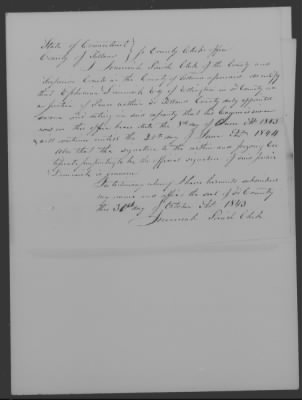 State of Connecticut
County of Tolland } ss County Clerks office
I Jeremiah Parish Clerk of the County and
Superior Courts in the County of Tolland aforesaid do certify
that Ephraim Dimmick Esq of Ellington in Sd County is
a Justice of Peace within Sd Tolland County duly appointed
sworn and acting in said capacity that his Commission
was in this office bears date the day of June AD 1843
& will continue untill the day of June AD 1844
Also that the signature to the within and foregoing Cer-
tificate purporting to be the official signature of said Justice
Dimmick is genuine
In testimony whereof I have hereunto subscribed
my name and affixed the seal of Sd County
this 30th day of October AD 1843
Jeremiah Parish Clerk